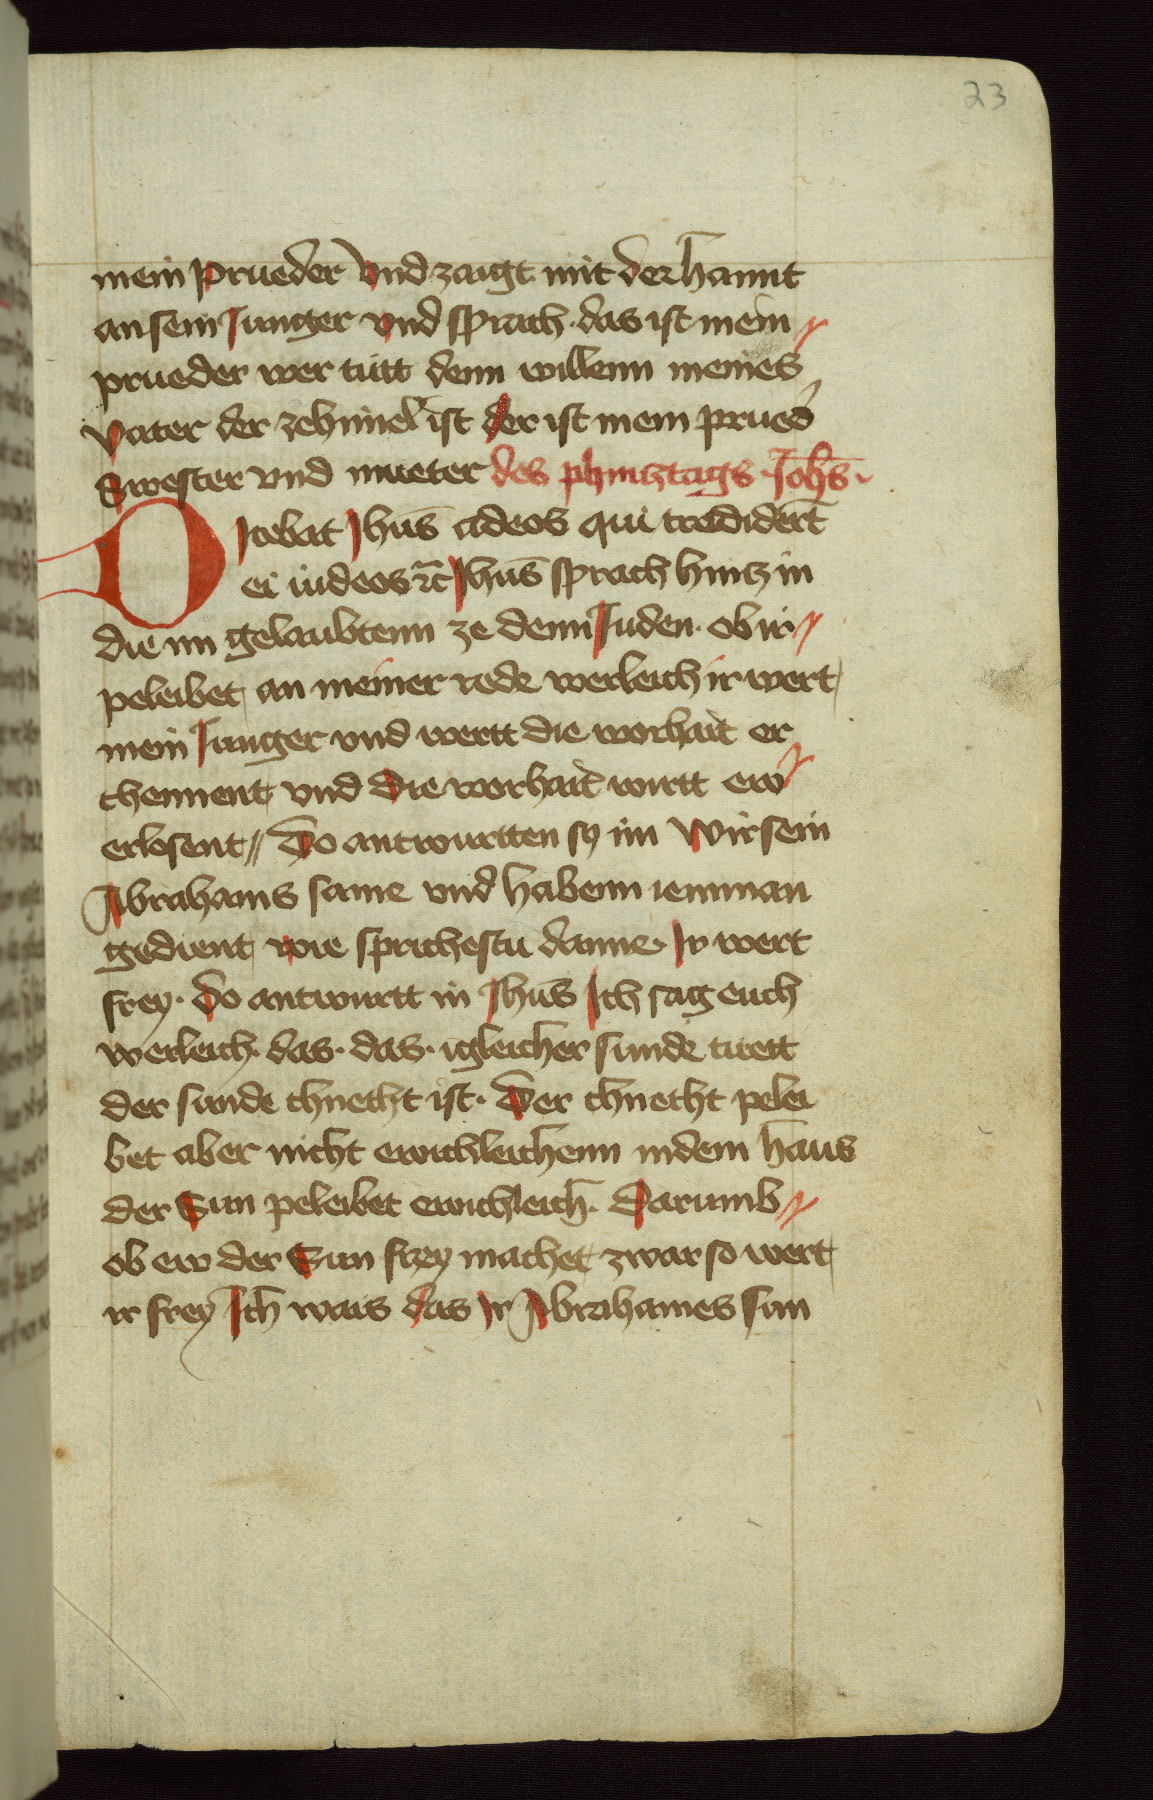 23
mein prueder vnd zaigt mit der hannt
an sein Junger vnd sprach · das ist mein
prueder wer tutt denn willenn meines
vater der ze himel ist der ist mein prued̓
Swester vnd mueter des phincztags · Joh̄s ·
Dicebat Jhūs ad eos qui crediderūt
ei iudeos ꝛc̄ Jhūs sprach hincz in
die im gelaubtenn ze denn Juden · ob ir
peleibet an meiner rede werleich ir wert
mein Junger vnd wertt die worhait er
chennent vnd die worhait wirtt ew
erlosent // Do antwurtten sy im Wir sein
Abrahams same vnd habenn iemman
gedient wie sprichestu danne · Ir wert
frey · do antwurtt in Jhūs Ich sag euch
werleich · das · das · igleicher sunde tuett
der sunde chnecht ist · Der chnecht pelei
bet aber nicht ewichleichenn in dem haus
der Sun peleibet ewichleich · Darumb
ob ew der Sun frey machet zwar so wert
ir frey Ich wais das Ir Abrahames sun